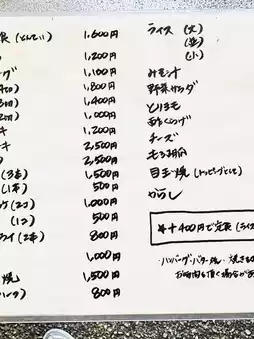 食(とんてい) 1,600円
1,200円
グ 1,100円
1,800円
1,400円
1,000円
キ 2,200円
2,500円
(3本) 1,500円
(1本) 500円
(2コ) 1,000円
(1コ) 500円
ライ(2本) 800円
1,000円
焼 1,500円
800円
ライス(大)
(並)
(小)
みそ汁
野菜サラダ
とりモモ
酢くらげ
チーズ
もろ胡瓜
目玉焼(トッピングとして)
からし
+400円で定食(ライス
・ハンバーグ・バター焼・焼き
お時間を頂く場合が